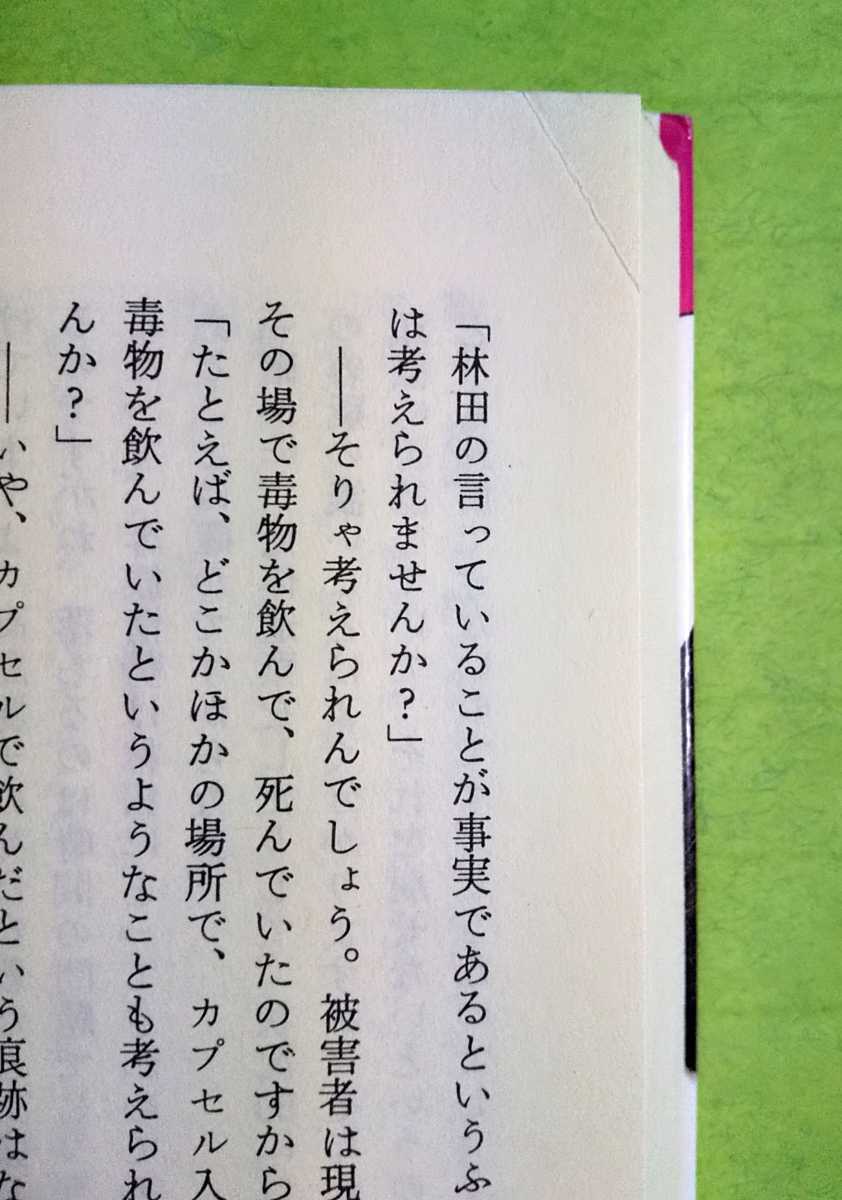 「林田の言っていることが事実であるというふ
は考えられませんか？」
――そりゃ考えられんでしょう。被害者は現
その場で毒物を飲んで、死んでいたのですから
「たとえば、どこかほかの場所で、カプセル入
毒物を飲んでいたというようなことも考えられ
んか？」
――いや、カプセルで飲んだという痕跡はな